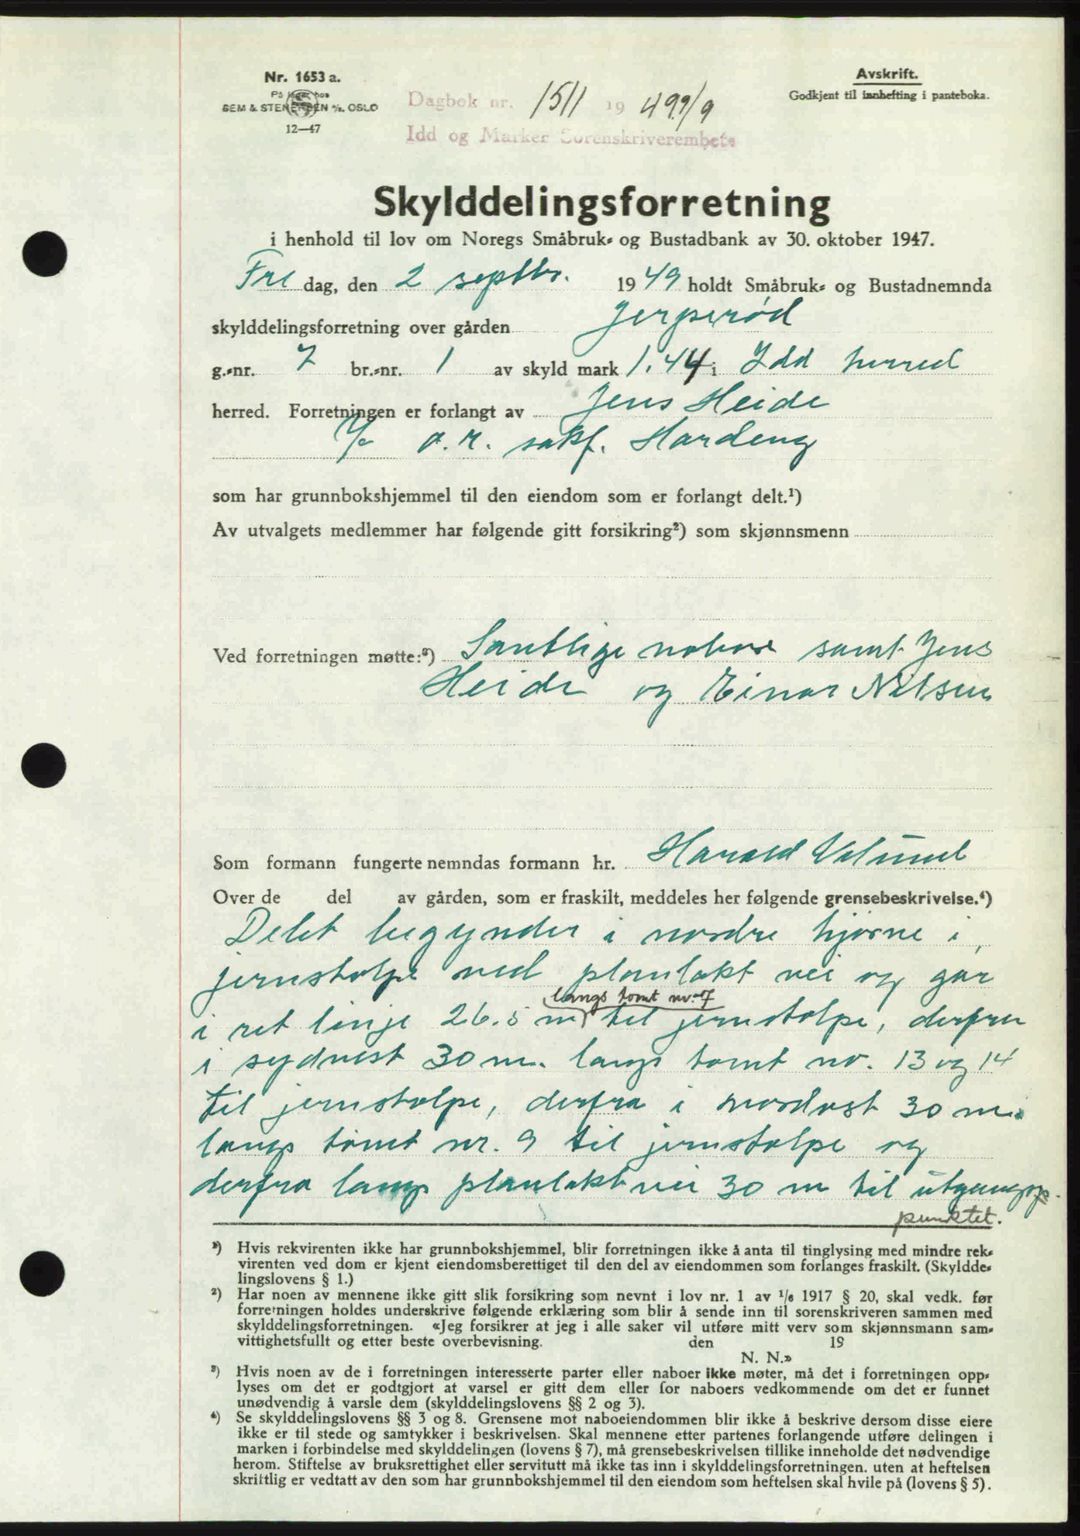 Nr. 1653 a.
På lager hos
SEM & STENERSEN A/S. OSLO
12—47
Dagbok nr. 1511 19 49 9/9
Idd og Marker Sorenskriverembete
Avskrift.
Godkjent til innhefting i panteboka.
Skylddelingsforretning
i henhold til lov om Noregs Småbruk- og Bustadbank av 30. oktober 1947.
Fredag, den 2 septbr. 1949 holdt Småbruk- og Bustadnemnda
skylddelingsforretning over gården Jerperød
g.-nr. 7 br.-nr. 1 av skyld mark 1.44 i Idd herred
herred. Forretningen er forlangt av Jens Heide
o.r. sakf. Hardeng
som har grunnbokshjemmel til den eiendom som er forlangt delt.¹)
Av utvalgets medlemmer har følgende gitt forsikring²) som skjønnsmenn
Ved forretningen møtte:³) Samtlige naboer samt Jens
Heide og Einar Nilsen
Som formann fungerte nemndas formann hr. Harald
Over de del av gården, som er fraskilt, meddeles her følgende grensebeskrivelse.⁴)
Delet begynder i nordre hjørne i
jernstolpe ved planlakt vei og går
langs tomt nr. 7
i ret linje 26.5 m til jernstolpe, derfra
i sydvest 30 m. langs tomt nr. 13 og 14
til jernstolpe, derfra i nordvest 30 m.
langs tomt nr. 9 til jernstolpe og
derfra langs planlakt vei 30 m til utgangs-
punktet.
¹) Hvis rekvirenten ikke har grunnbokshjemmel, blir forretningen ikke å anta til tinglysing med mindre rek-
virenten ved dom er kjent eiendomsberettiget til den del av eiendommen som forlanges fraskilt. (Skyldde-
lingslovens § 1.)
²) Har noen av mennene ikke gitt slik forsikring som nevnt i lov nr. 1 av ¹/₆ 1917 § 20, skal vedk. før
forretningen holdes underskrive følgende erklæring som blir å sende inn til sorenskriveren sammen med
skylddelingsforretningen. «Jeg forsikrer at jeg i alle saker vil utføre mitt verv som skjønnsmann sam-
vittighetsfullt og etter beste overbevisning. den 19
N. N.»
³) Hvis noen av de i forretningen interesserte parter eller naboer ikke møter, må det i forretningen opp-
lyses om det er godtgjort at varsel er gitt dem eller for naboers vedkommende om det er funnet
unødvendig å varsle dem (skylddelingslovens §§ 2 og 3).
⁴) Se skylddelingslovens §§ 3 og 8. Grensene mot naboeiendommen blir ikke å beskrive dersom disse eiere
ikke er til stede og samtykker i beskrivelsen. Skal mennene etter partenes forlangende utføre delingen i
marken i forbindelse med skylddelingen (lovens § 7), må grensebeskrivelsen tillike inneholde det nødvendige
herom. Stiftelse av bruksrettighet eller servitutt må ikke tas inn i skylddelingsforretningen. uten at heftelsen
skriftlig er vedtatt av den som har grunnbokshjemmel til den eiendom som heftelsen skal hvile på (lovens § 5).